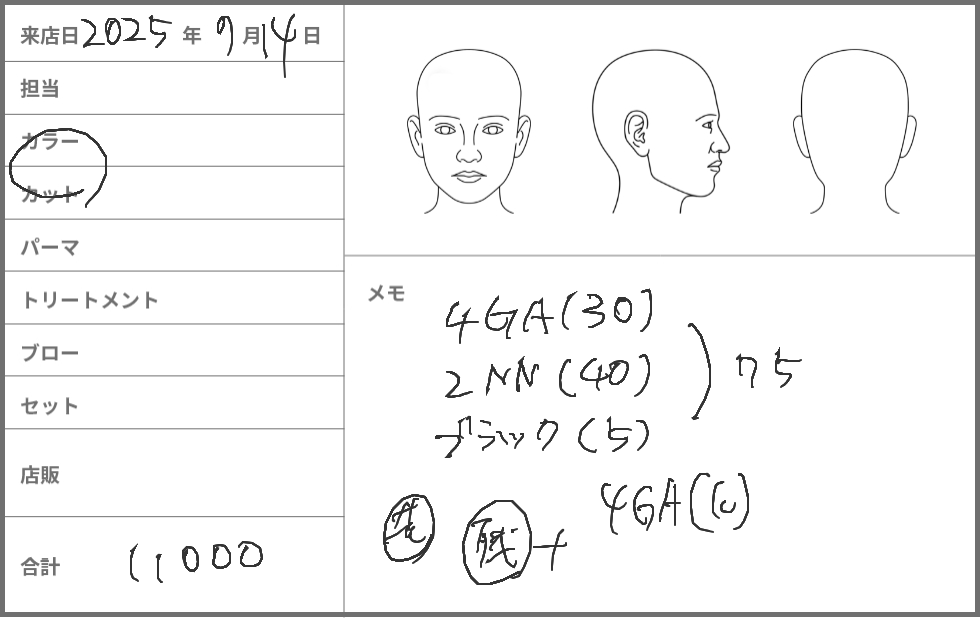 来店日 2025 年 7 月 14 日
担当
カラー
カット
パーマ
トリートメント
ブロー
セット
店販
合計 11000
メモ
4GA(30)
2NN(40)
ブラック(5)
75
残 + 4GA(10)